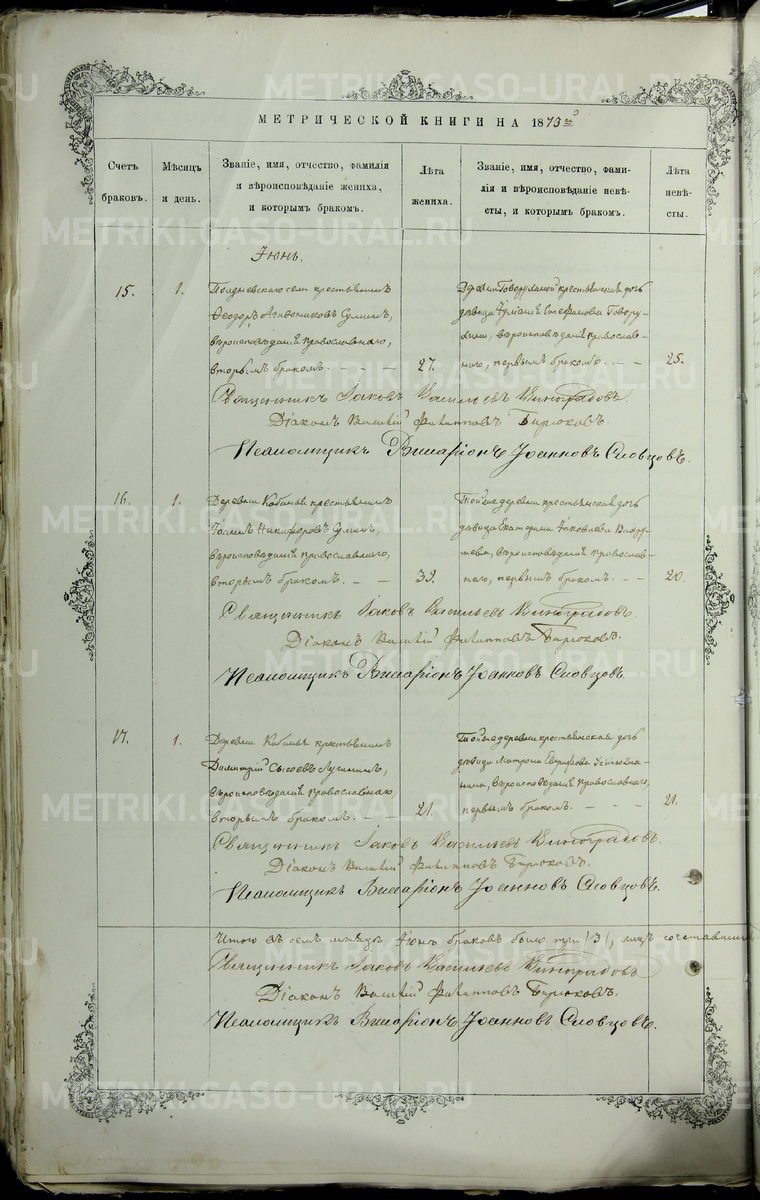 МЕТРИЧЕСКОЙ КНИГИ НА 1873й
Счетъ браковъ.
Мѣсяцъ и день.
Званіе, имя, отчество, фамилія
и вѣроисповѣданіе жениха,
и которымъ бракомъ.
Лѣта жениха.
Званіе, имя, отчество, фами-
лія и вѣроисповѣданіе невѣ-
сты, и которымъ бракомъ.
Лѣта невѣ-
сты.
Іюнь.
15.
1.
Полдневскаго села крестьянинъ
Ѳеодоръ Агафониковъ Сушинъ,
вѣроисповѣданія православнаго,
вторымъ бракомъ. - - -
27.
Деревни Говорухиной крестьянская дочь
дѣвица Стефанова Говору-
хина, вѣроисповѣданія православ-
наго, первымъ бракомъ. - - -
25.
Священникъ Іаковъ Васильевъ Виноградовъ
Діаконъ Василій Филипповъ Бирюковъ.
Псаломщикъ Виссаріонъ Іоанновъ Словцовъ.
16.
1.
Деревни Кабаньи крестьянинъ
Никифоровъ Сушинъ,
вѣроисповѣданія православнаго,
вторымъ бракомъ. - -
33.
Той же деревни крестьянская дочь
дѣвица Екатерина Іаковлева
вѣроисповѣданія православ-
наго, первымъ бракомъ. - -
20.
Священникъ Іаковъ Васильевъ Виноградовъ
Діаконъ Василій Филипповъ Бирюковъ.
Псаломщикъ Виссаріонъ Іоанновъ Словцовъ.
17.
1.
Деревни Кабаньи крестьянинъ
Димитрій Сысоевъ Лучининъ,
вѣроисповѣданія православнаго,
вторымъ бракомъ. - -
21.
Той же деревни крестьянская дочь
дѣвица Матрона
вѣроисповѣданія православнаго,
первымъ бракомъ. - - -
21.
Священникъ Іаковъ Васильевъ Виноградовъ.
Діаконъ Василій Филипповъ Бирюковъ.
Псаломщикъ Виссаріонъ Іоанновъ Словцовъ.
Итого въ семъ мѣсяцѣ Іюнѣ браковъ было три /3/, лицъ сочетавших
Священникъ Іаковъ Васильевъ Виноградовъ
Діаконъ Василій Филипповъ Бирюковъ.
Псаломщикъ Виссаріонъ Іоанновъ Словцовъ.
METRIKI.GASO-URAL.RU